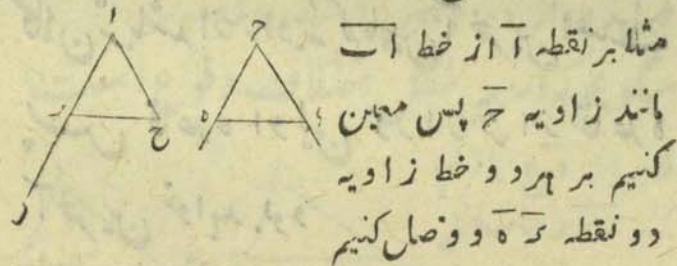 مثلا بر نقطه آ از خط اب
مانند زاویه ح پس معین
کنیم بر هر دو خط زاویه
دو نقطه ء ه و وصل کنیم
ا
ح
ح
ه
ء